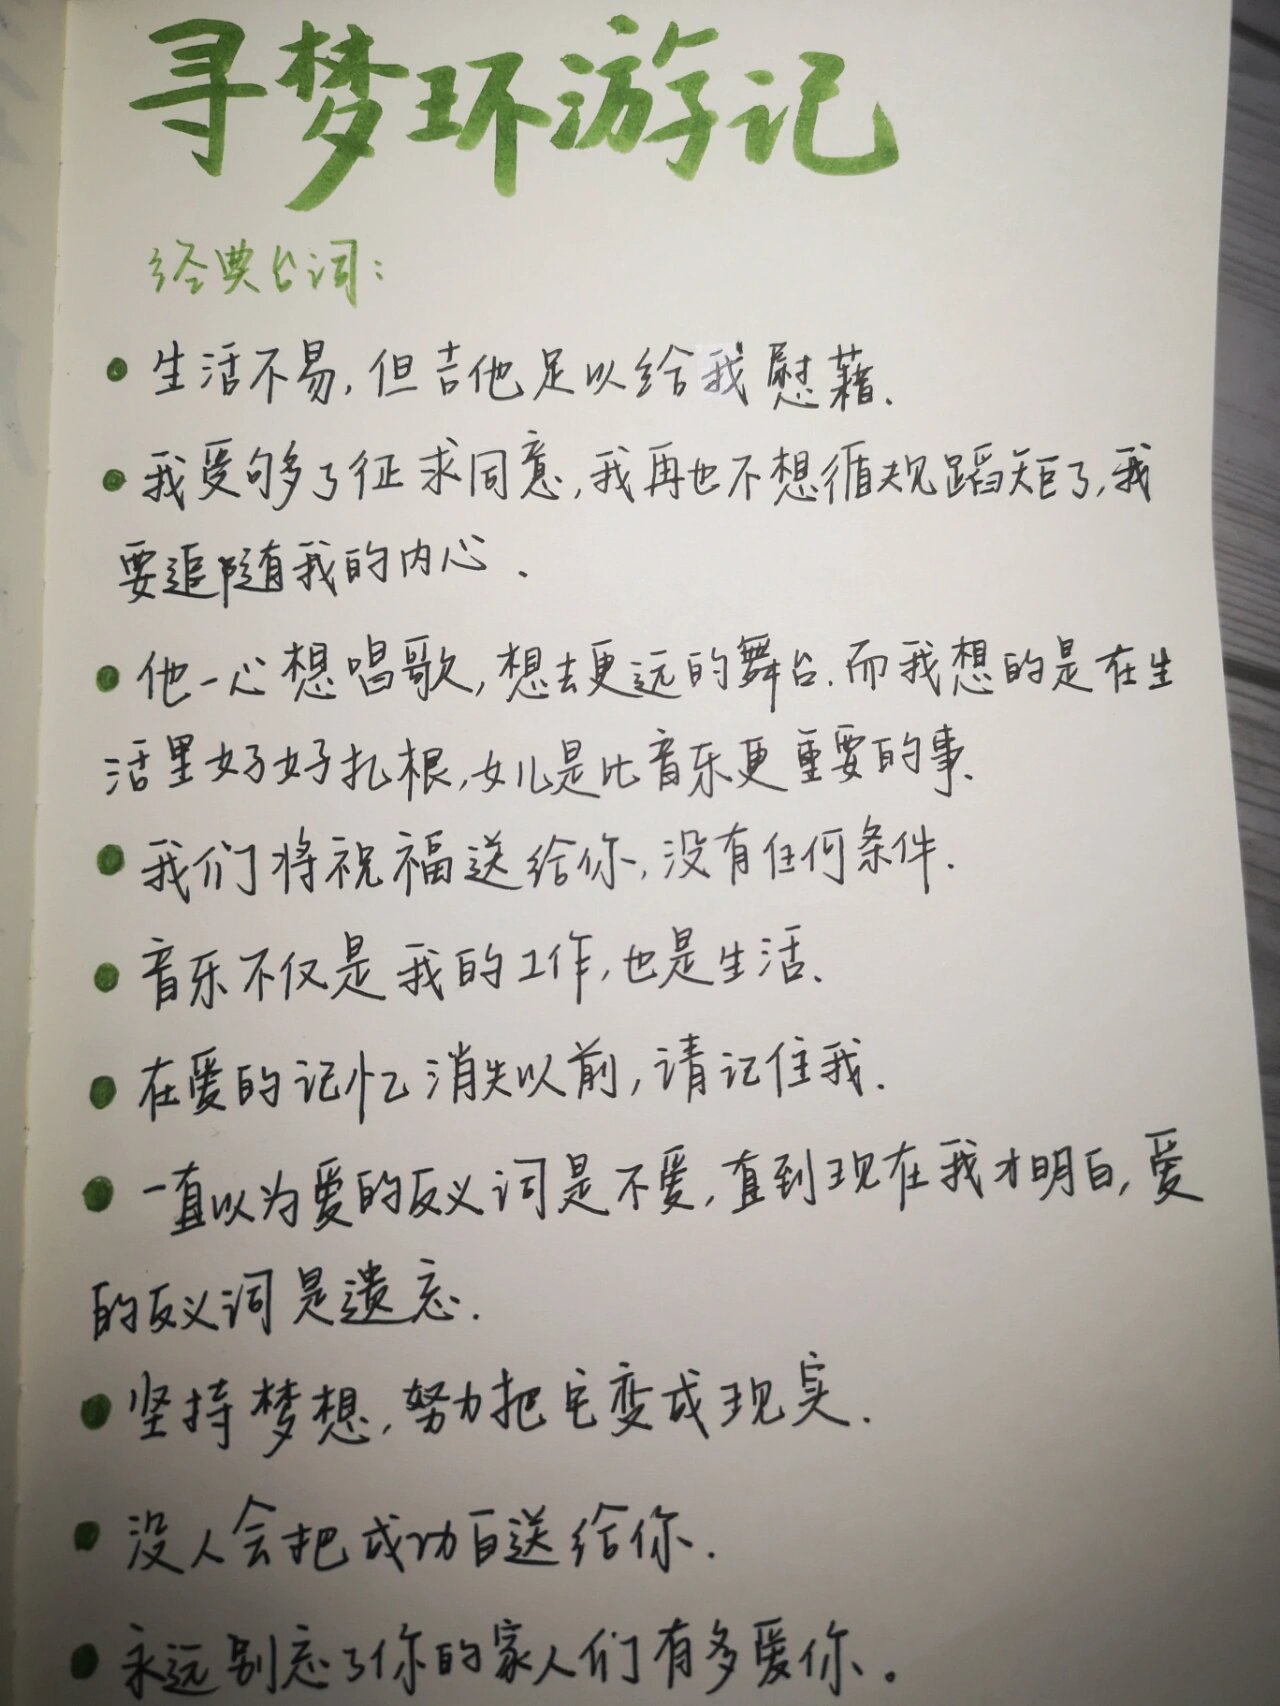 寻梦环游记
经典台词：
• 生活不易，但吉他足以给我慰藉.
• 我受够了征求同意，我再也不想循规蹈矩了，我
要追随我的内心.
• 他一心想唱歌，想去更远的舞台.而我想的是在生
活里好好扎根，女儿是比音乐更重要的事.
• 我们将祝福送给你，没有任何条件.
• 音乐不仅是我的工作，也是生活.
• 在爱的记忆消失以前，请记住我.
• 一直以为爱的反义词是不爱，直到现在我才明白，爱
的反义词是遗忘.
• 坚持梦想，努力把它变成现实.
• 没人会把成功白送给你.
• 永远别忘了你的家人们有多爱你。